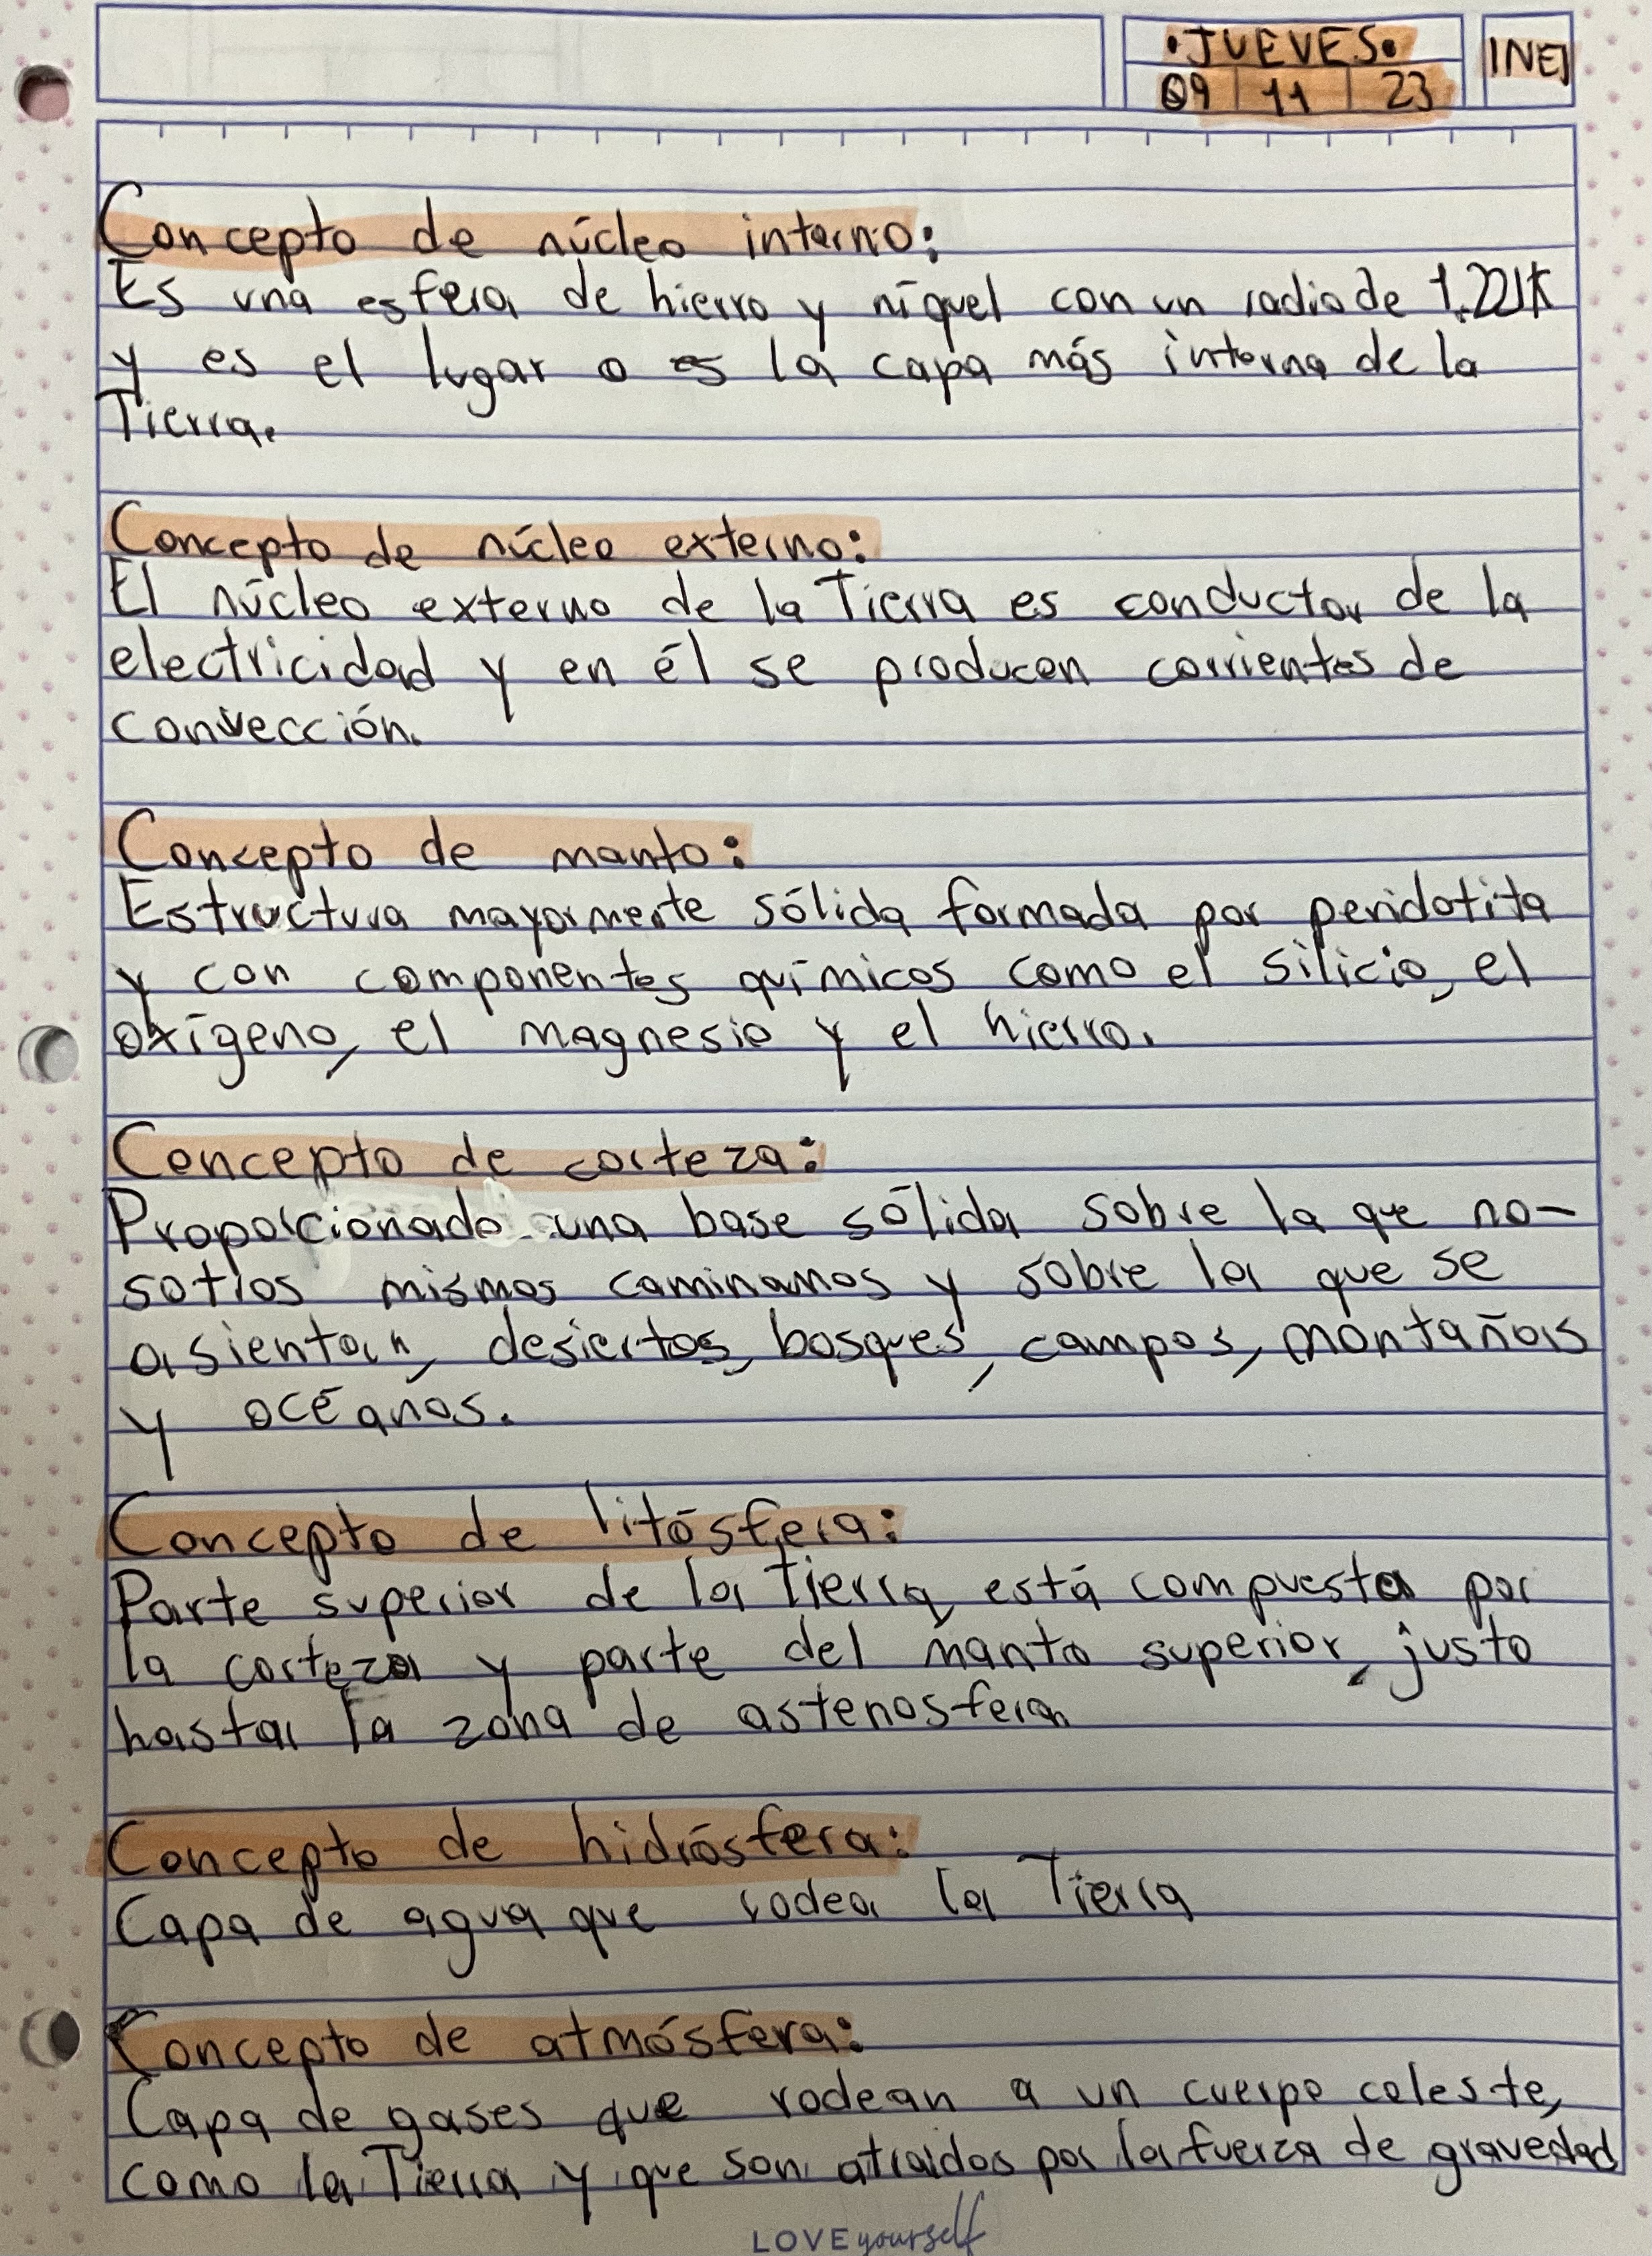 •JUEVES•
09 11 23
INEJ
Concepto de núcleo interno:
Es una esfera de hierro y níquel con un radio de 1.221K
y es el lugar o es la capa más interna de la
Tierra.
Concepto de núcleo externo:
El núcleo externo de la Tierra es conductor de la
electricidad y en él se producen corrientes de
convección.
Concepto de manto:
Estructura mayormente sólida formada por peridotita
y con componentes químicos como el silicio, el
oxígeno, el magnesio y el hierro.
Concepto de corteza:
Proporcionado una base sólida sobre la que no-
sotros mismos caminamos y sobre la que se
asientan, desiertos, bosques, campos, montañas
y océanos.
Concepto de litósfera:
Parte superior de la Tierra, está compuesta por
la corteza y parte del manto superior, justo
hasta la zona de astenosfera
Concepto de hidrósfera:
Capa de agua que rodea la Tierra
Concepto de atmósfera:
Capa de gases que rodean a un cuerpo celeste,
como la Tierra y que son atraidos por la fuerza de gravedad
LOVE yourself